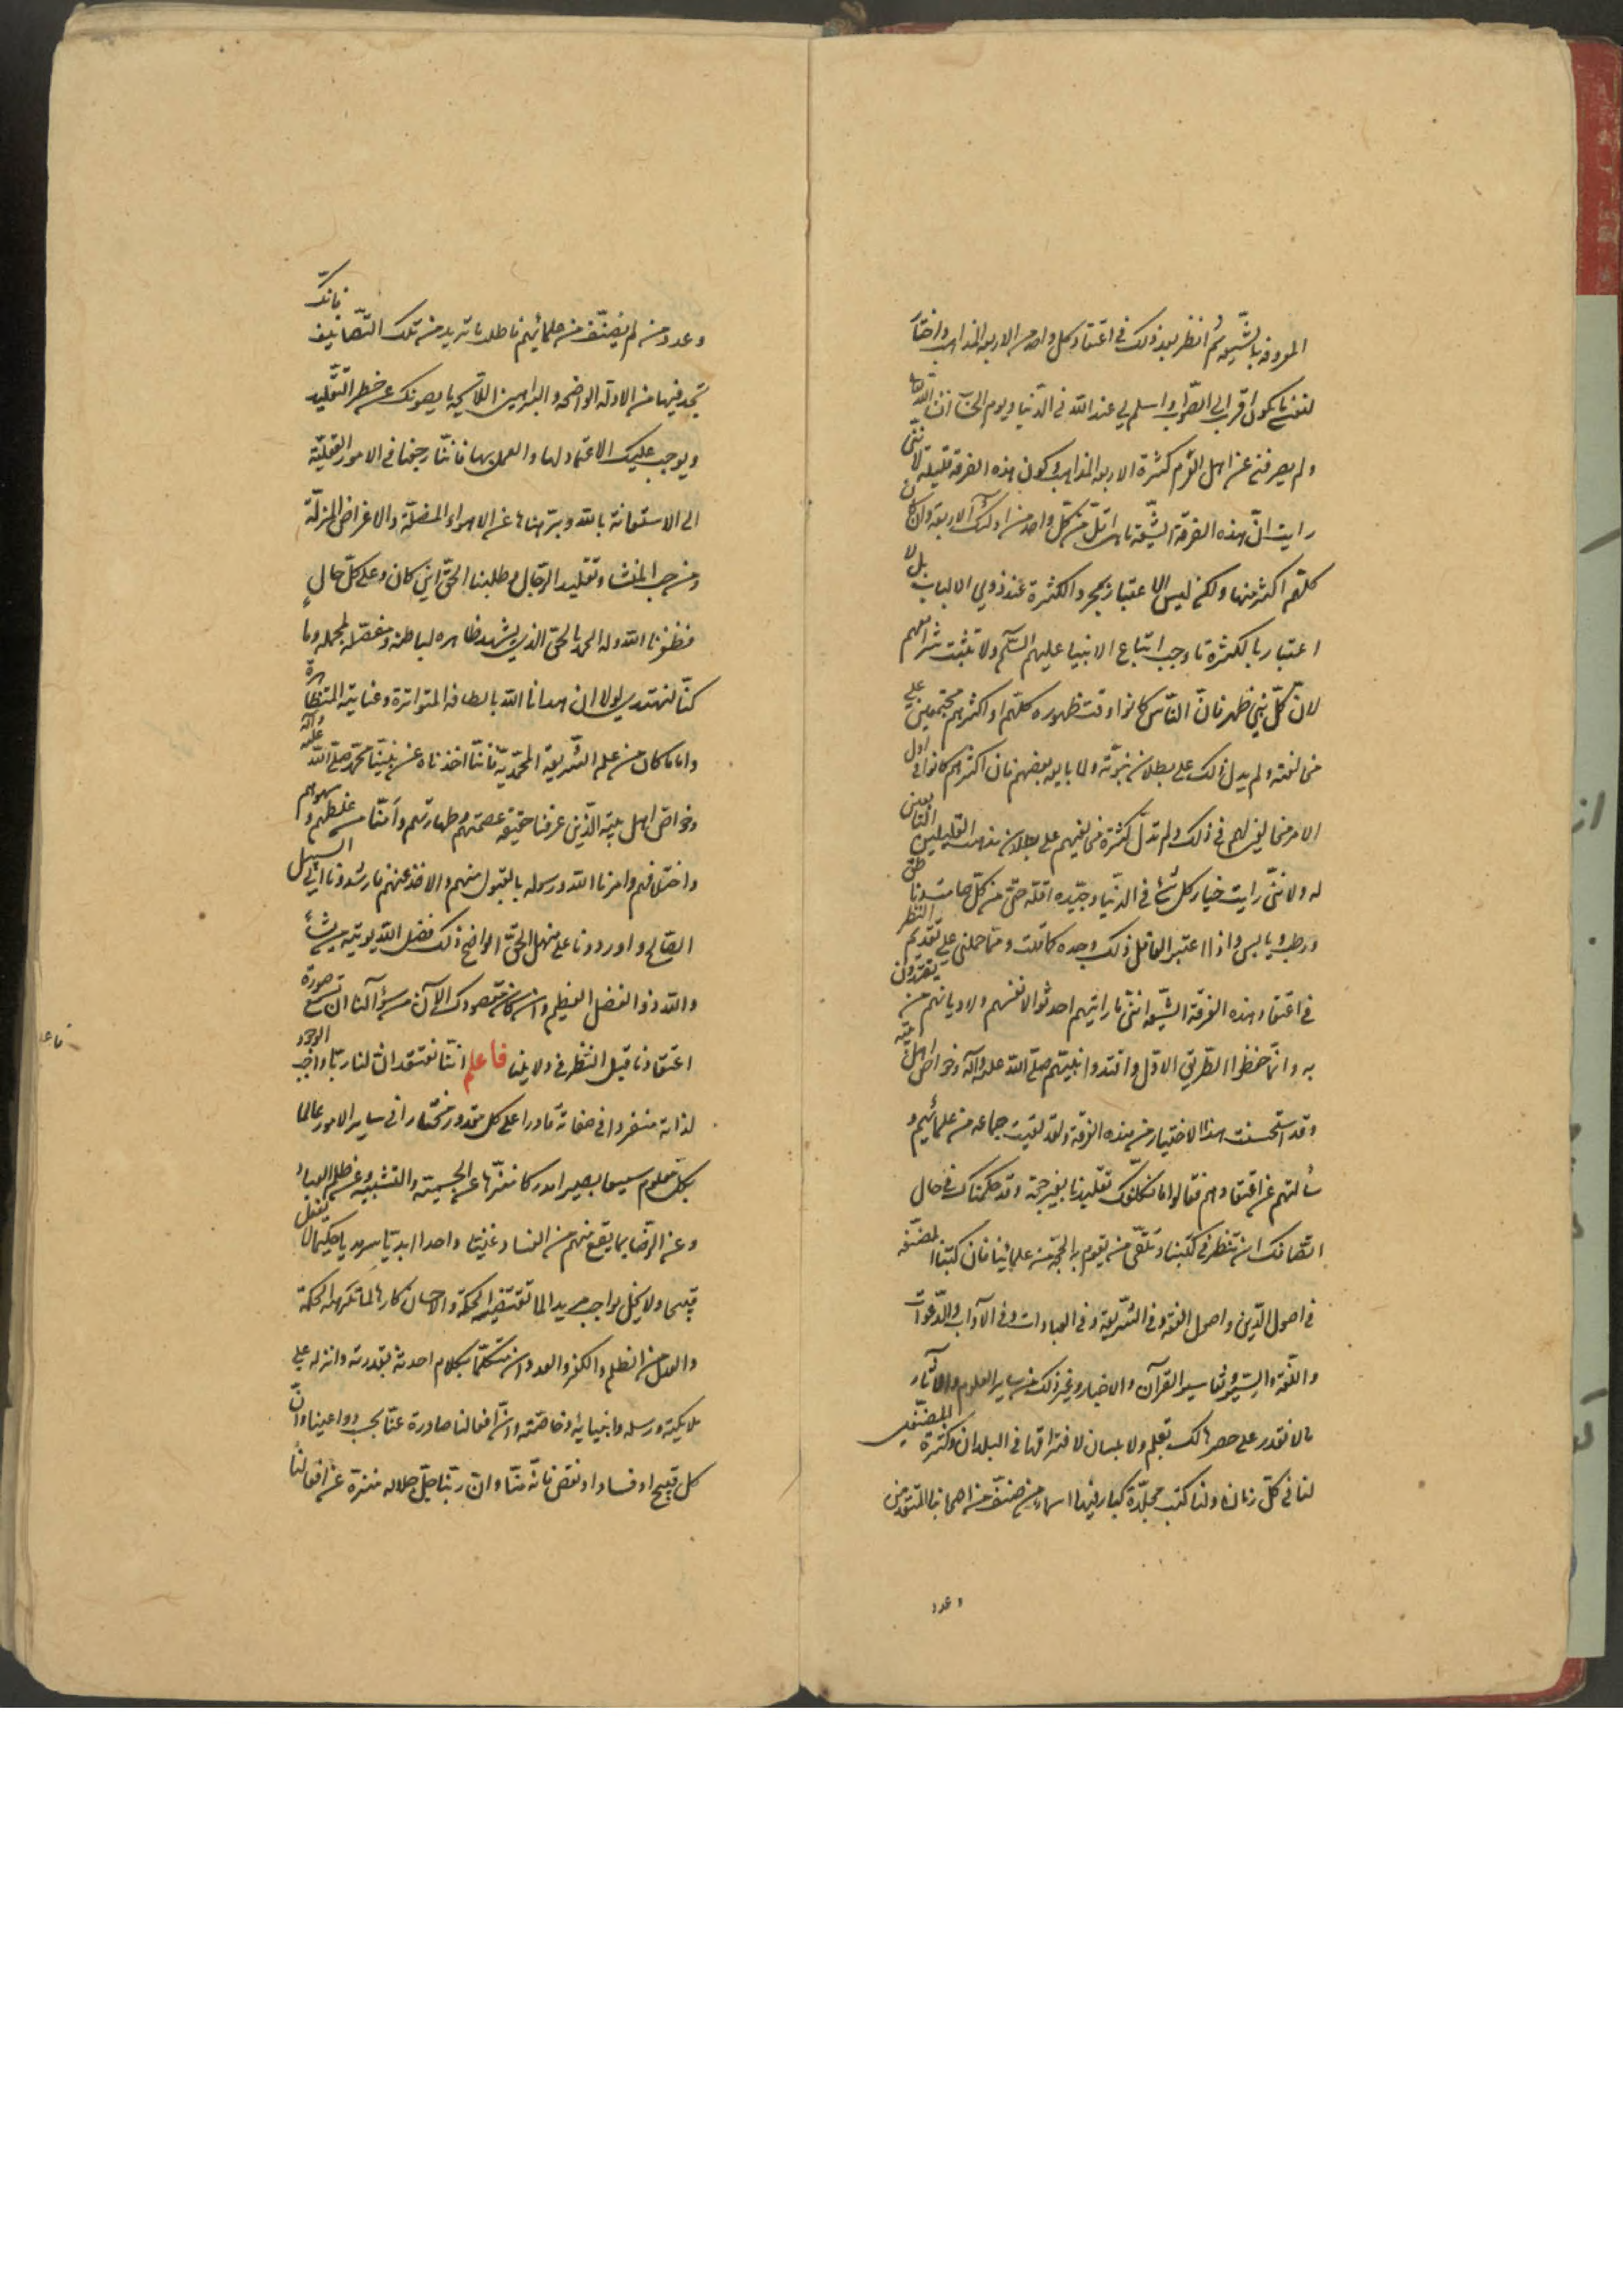 المعروفة بالشّيعة ثم انظر بعد ذلك في اعتقاد كل واحد من الاربعة المذاهب واختار
لنفسي ما يكون اقرب الى الصّواب واسلم لي عند الله في الدّنيا ويوم الحساب ان شاء الله تعالى
ولم يصرفني عن اهل كثرة الاربعة المذاهب وكون هذه الفرقة قليلة لانّني
رايت انّ هذه الفرقة الشّيعة ما هى اقلّ من كلّ واحد من اولئك الاربعة وان كان
كلّهم اكثر منها ولكن ليس الاعتبار بمجرد الكثرة عند ذوي الالباب بل لا
اعتبار بالكثرة ما وجب اتباع الانبيا عليهم السّلم ولا تثبت شرائعهم
لانّ كلّ نبيّ ظهر فانّ النّاس كانوا وقت ظهوره كلّهم او اكثرهم مجتمعين على
مخالفته ولم يدل ذلك على بطلان نبوّته ولما بايعه بعضهم فان اكثرهم كانوا في اول
الامر مخالفين لهم في ذلك ولم تدلّ كثرة مخالفيهم على بطلان مذهب القليلين التابعين
له ولانّني رايت خيار كل شئ في الدّنيا وجيّده اقلّه حتّى من كلّ صامت وناطق
ورطب ويابس واذا اعتبر العاقل ذلك وجده كما قلت وممّا حملني على تقديم النظر
في اعتقاد هذه الفرقة الشّيعة انّني ما رايتهم احدثوا لانفسهم ولا ديانهم من يقتدون
به وانّما حفظوا الطّريق الاوّل واقتدوا بنبيّهم صلّى الله عليه وآله وخواصّ اهل بيته
وقد استحسنت هذا الاختيار من هذه الفرقة ولقد لقيت جماعة من علمائهم و
سألتهم عن اعتقادهم فقالوا ما نكلّفك تقليدنا بغير حجّة وقد حكمناك في حال
انصافك ان تنظر في كتبنا وتلقى من يقوم بالحجّة من علمائنا فان كتبنا المصنّفة
في اصول الدّين واصول الفقه وفي الشّريعة وفي العبادات وفي الآداب والدّعوات
واللّغة والسّير وتفاسير القرآن والاخبار وغير ذلك من ساير العلوم والآثار
ما لا نقدر على حصرها لك بقلم ولا بلسان لافتراقها في البلدان وكثرة المصنّفين
لنا في كلّ زمان ولنا كتب مجلّدة كبار فيها اسماء من صنّف من اصحابنا المتقدمين
وعدد
وعدد من لم يصنّف من علمائهم فاطلب ما تريد من تلك التّصانيف فانك
تجد فيها من الادلّة الواضحة والبراهين اللائحة ما يصونك عن خطر التّقليد
ويوجب عليك الاعتماد لها والعمل بها فانّنا رجعنا في الامور العقليّة
الى الاستعانة بالله ونزهناها عن الاهواء المضلّة والاغراض المزلّة
ومن حب المنشاء وتقليد الرّجال في طلبنا الحقّ اين كان وعلى كلّ حالٍ
فظفرنا الله وله الحمد بالحق الذي يشهد ظاهره لباطنه ومفصّله لمجمله وما
كنّا لنهتدي لولا ان هدانا الله بالطافه المتواترة وعنايته المتظاهرة
واما ما كان من علم الشّريعة المحمّديّة فانّنا اخذناه عن نبيّنا محمّد صلى الله عليه وآله
وخواصّ اهل بيته الذين عرفنا حقيقة عصمتهم وطهارتهم وآمنّا من غلطهم وسهوهم
واختلافهم وامرنا الله ورسوله بالقبول منهم والاخذ عنهم فارشدونا الى السبيل
الصالح واوردونا على منهل الحقّ الواضح ذلك فضل الله يوتيه من يشآء
والله ذو الفضل العظيم وان كان مقصودك الآن من سؤآلنا ان تسمع صورة
اعتقادنا قبل النّظر في دلايلنا فاعلم انّنا نعتقد انّ لنا ربّا واجب الوجود
لذاته منفردا في صفاته قادرا على كل مقدور مختارا في ساير الامور عالما
بكلّ معلوم سميعا بصيرا مدركا منزّها عن الجسميّة والتشبيه وعن ظلم العباد
وعن الرّضا بما يقع منهم من الفساد غنيّا واحدا ابديّا سرمديا حكيما لا يفعل
قبيحا ولا يخلّ بواجب مريدا لما تقتضيه الحكمة والاحسان كارها لما تكرهه الحكمة
والعدل من الظلم والكفر والعدوان متكلّما بكلام احدثه بقدرته وانزله على
ملايكته ورسله وانبيائه وخاصّته وانّ افعالنا صادرة عنّا بحسب دواعينا وانّ
كل قبيح او فساد او نقص فانّه منّا وانّ ربّنا جلّ جلاله منزه عن افعالنا